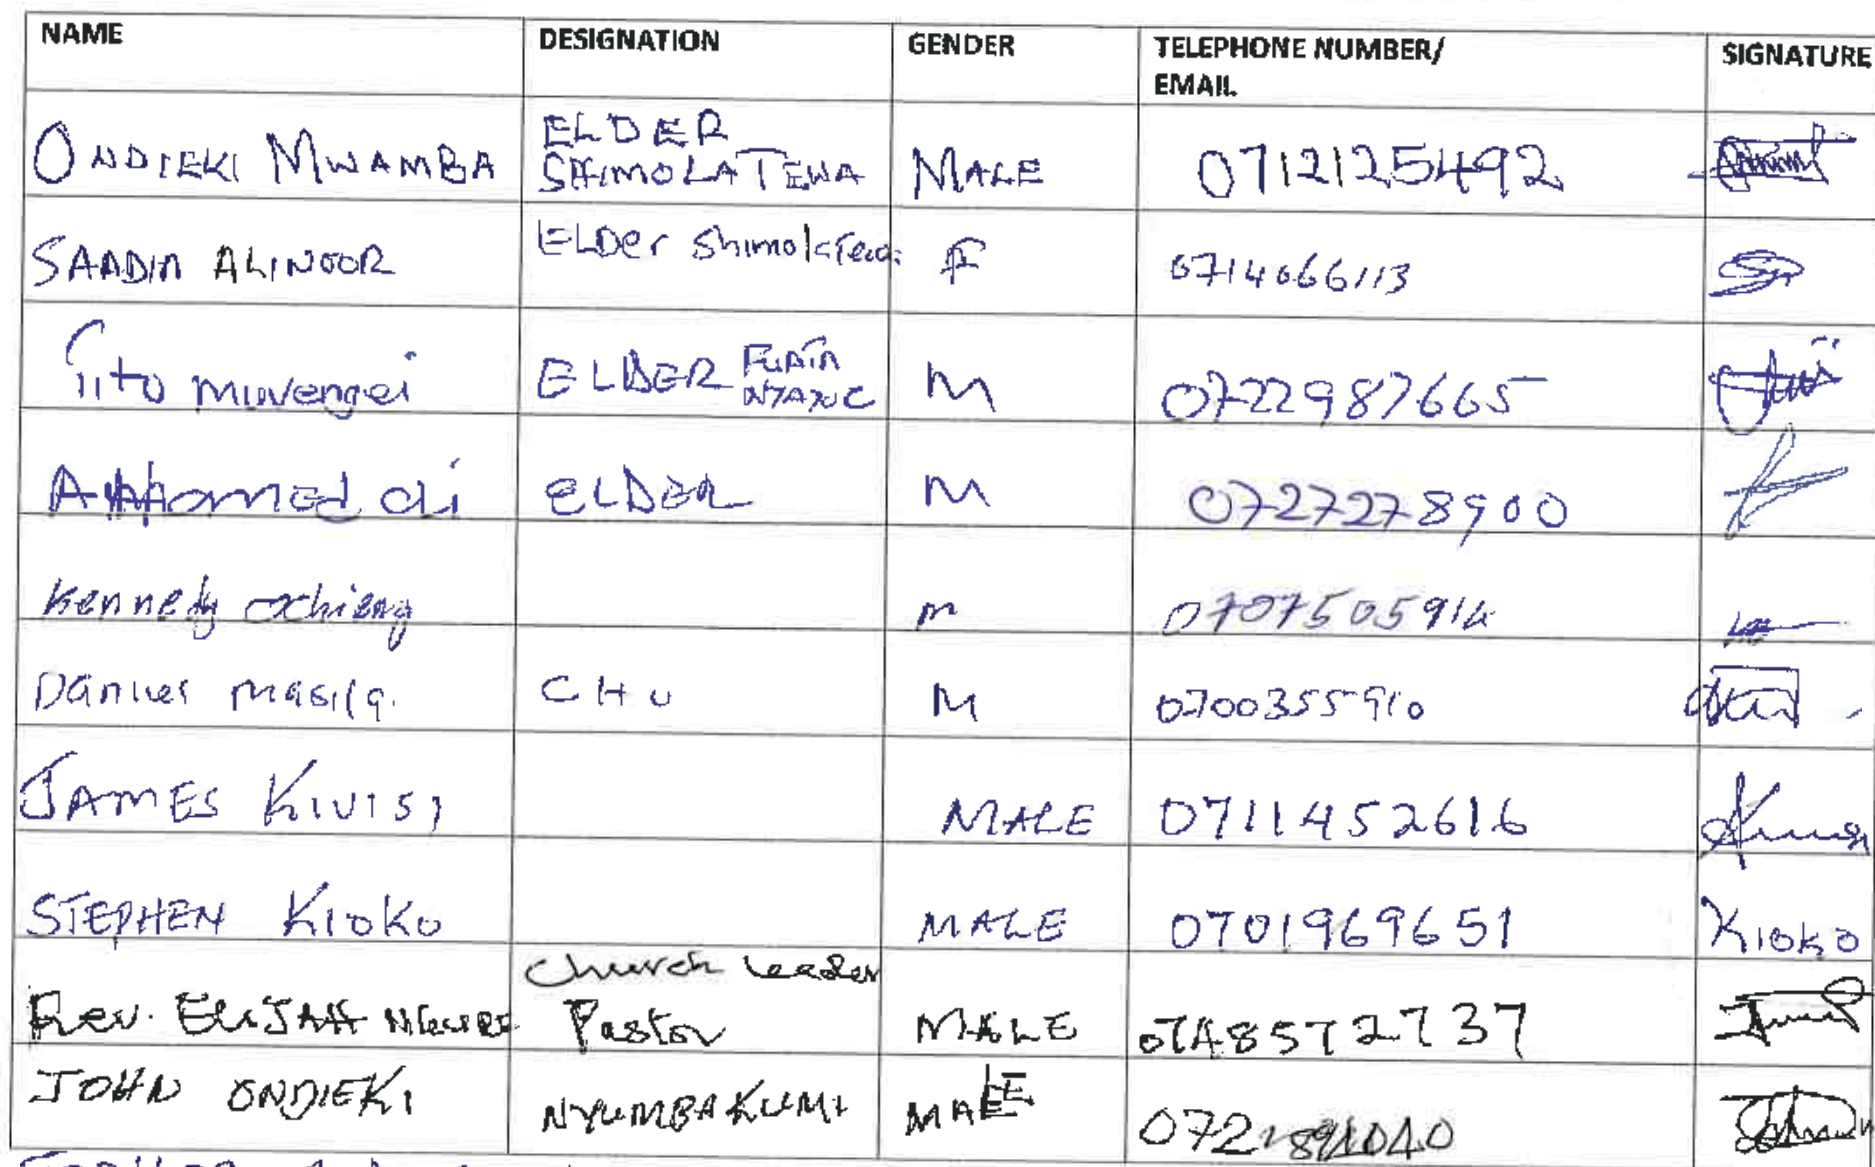 NAME DESIGNATION GENDER TELEPHONE NUMBER/ EMAIL SIGNATURE
ONDIEKI MWAMBA ELDER SHIMOLATEWA MALE 0712125492
SAADIA ALINOOR ELDER Shimolatewa F 0714066113
Tito muvengei ELDER M 0722987665
ali ELDER M 0727278900
Kennedy ochieng m 0707505914
Daniel masila. CHU M 0700355910
JAMES KIVISI MALE 0711452616
STEPHEN KIOKO MALE 0701969651 KIOKO
Rev. ELIJAH Church leader Pastor MALE 0748572737
JOHN ONDIEKI NYUMBAKUMI MALE